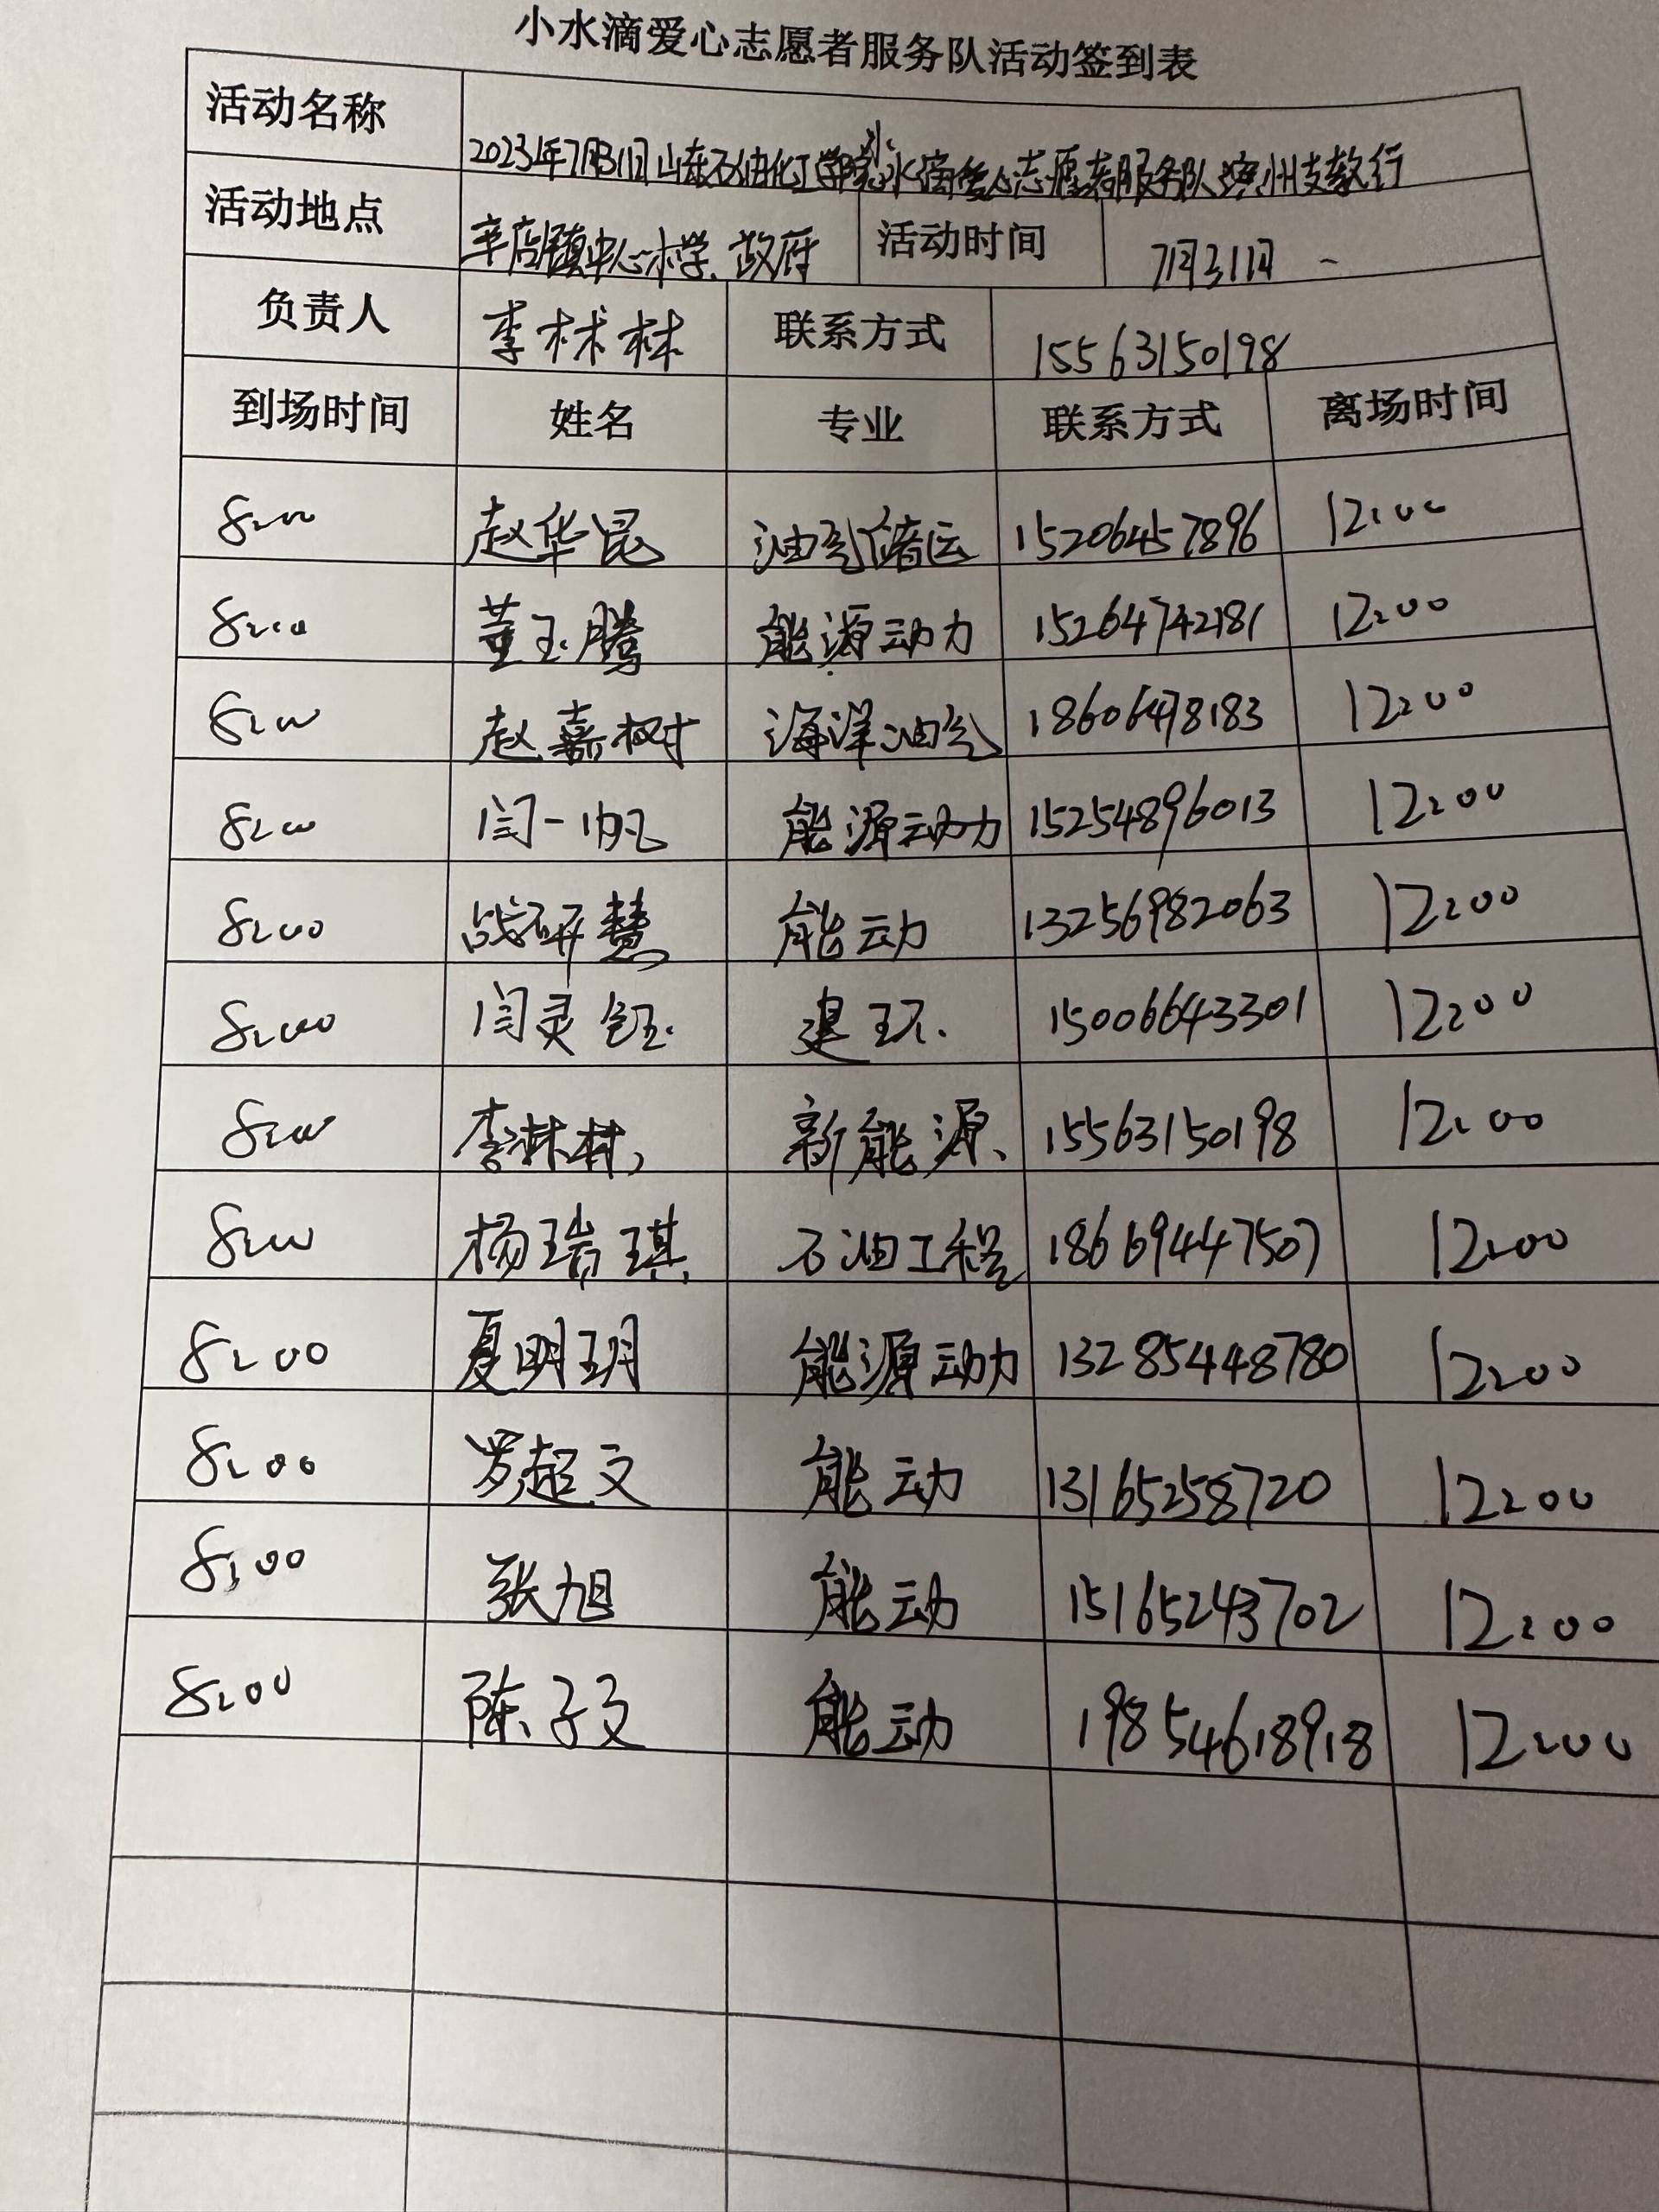 小水滴爱心志愿者服务队活动签到表
活动名称 2023年7月31日山东石油化工学院小水滴爱心志愿者服务队滨州支教行
活动地点 辛店镇中心小学、政府 活动时间 7月31日
负责人 李林林 联系方式 15563150198
到场时间 姓名 专业 联系方式 离场时间
8:00 赵华昆 油气储运 15206457896 12:00
8:00 董玉腾 能源动力 15264742181 12:00
8:00 赵嘉树 海洋油气 18606478183 12:00
8:00 闫一帆 能源动力 15254896013 12:00
8:00 战研慧 能动 13256982063 12:00
8:00 闫灵钰 建环 15006643301 12:00
8:00 李林林 新能源 15563150198 12:00
8:00 杨瑞琪 石油工程 18669447507 12:00
8:00 夏明玥 能源动力 13285448780 12:00
8:00 罗超文 能动 13165258720 12:00
8:00 张旭 能动 15165243702 12:00
8:00 陈子文 能动 19854618918 12:00